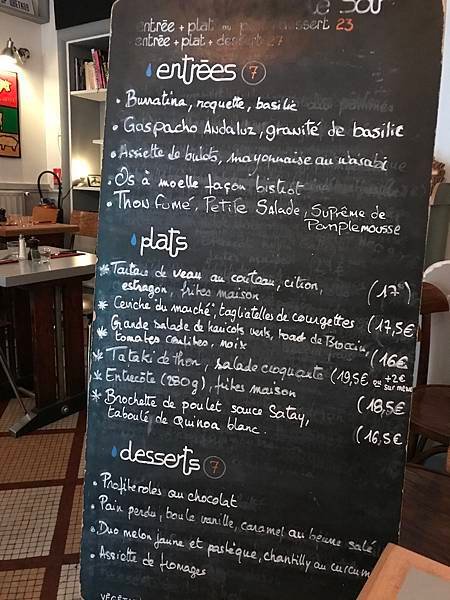 SOIR
entrée + plat ou plat + dessert 23
entrée + plat + dessert 27
entrées 7
• Burratina, roquette, basilic
• Gaspacho Andaluz, granité de basilic
• Assiette de bulots, mayonnaise au wasabi
• Os à moelle façon bistrot
• Thon fumé, Petite Salade, Suprême de
Pamplemousse
plats
* Tartare de veau au couteau, citron,
estragon, frites maison (17€)
* Ceviche "du marché", tagliatelles de courgettes (17,5€
* Grande salade de haricots verts, toast de Brocciu,
tomates confites, noix (16€
* Tataki de thon, salade croquante (19,5€ ou +2€
sur menu
* Entrecôte (280g), frites maison (18,5€
* Brochette de poulet sauce Satay,
taboulé de Quinoa blanc. (16,5€
desserts 7
• Profiteroles au chocolat
• Pain perdu, boule vanille, caramel au beurre salé
• Duo melon jaune et pastèque, chantilly au curcuma
• Assiette de fromages